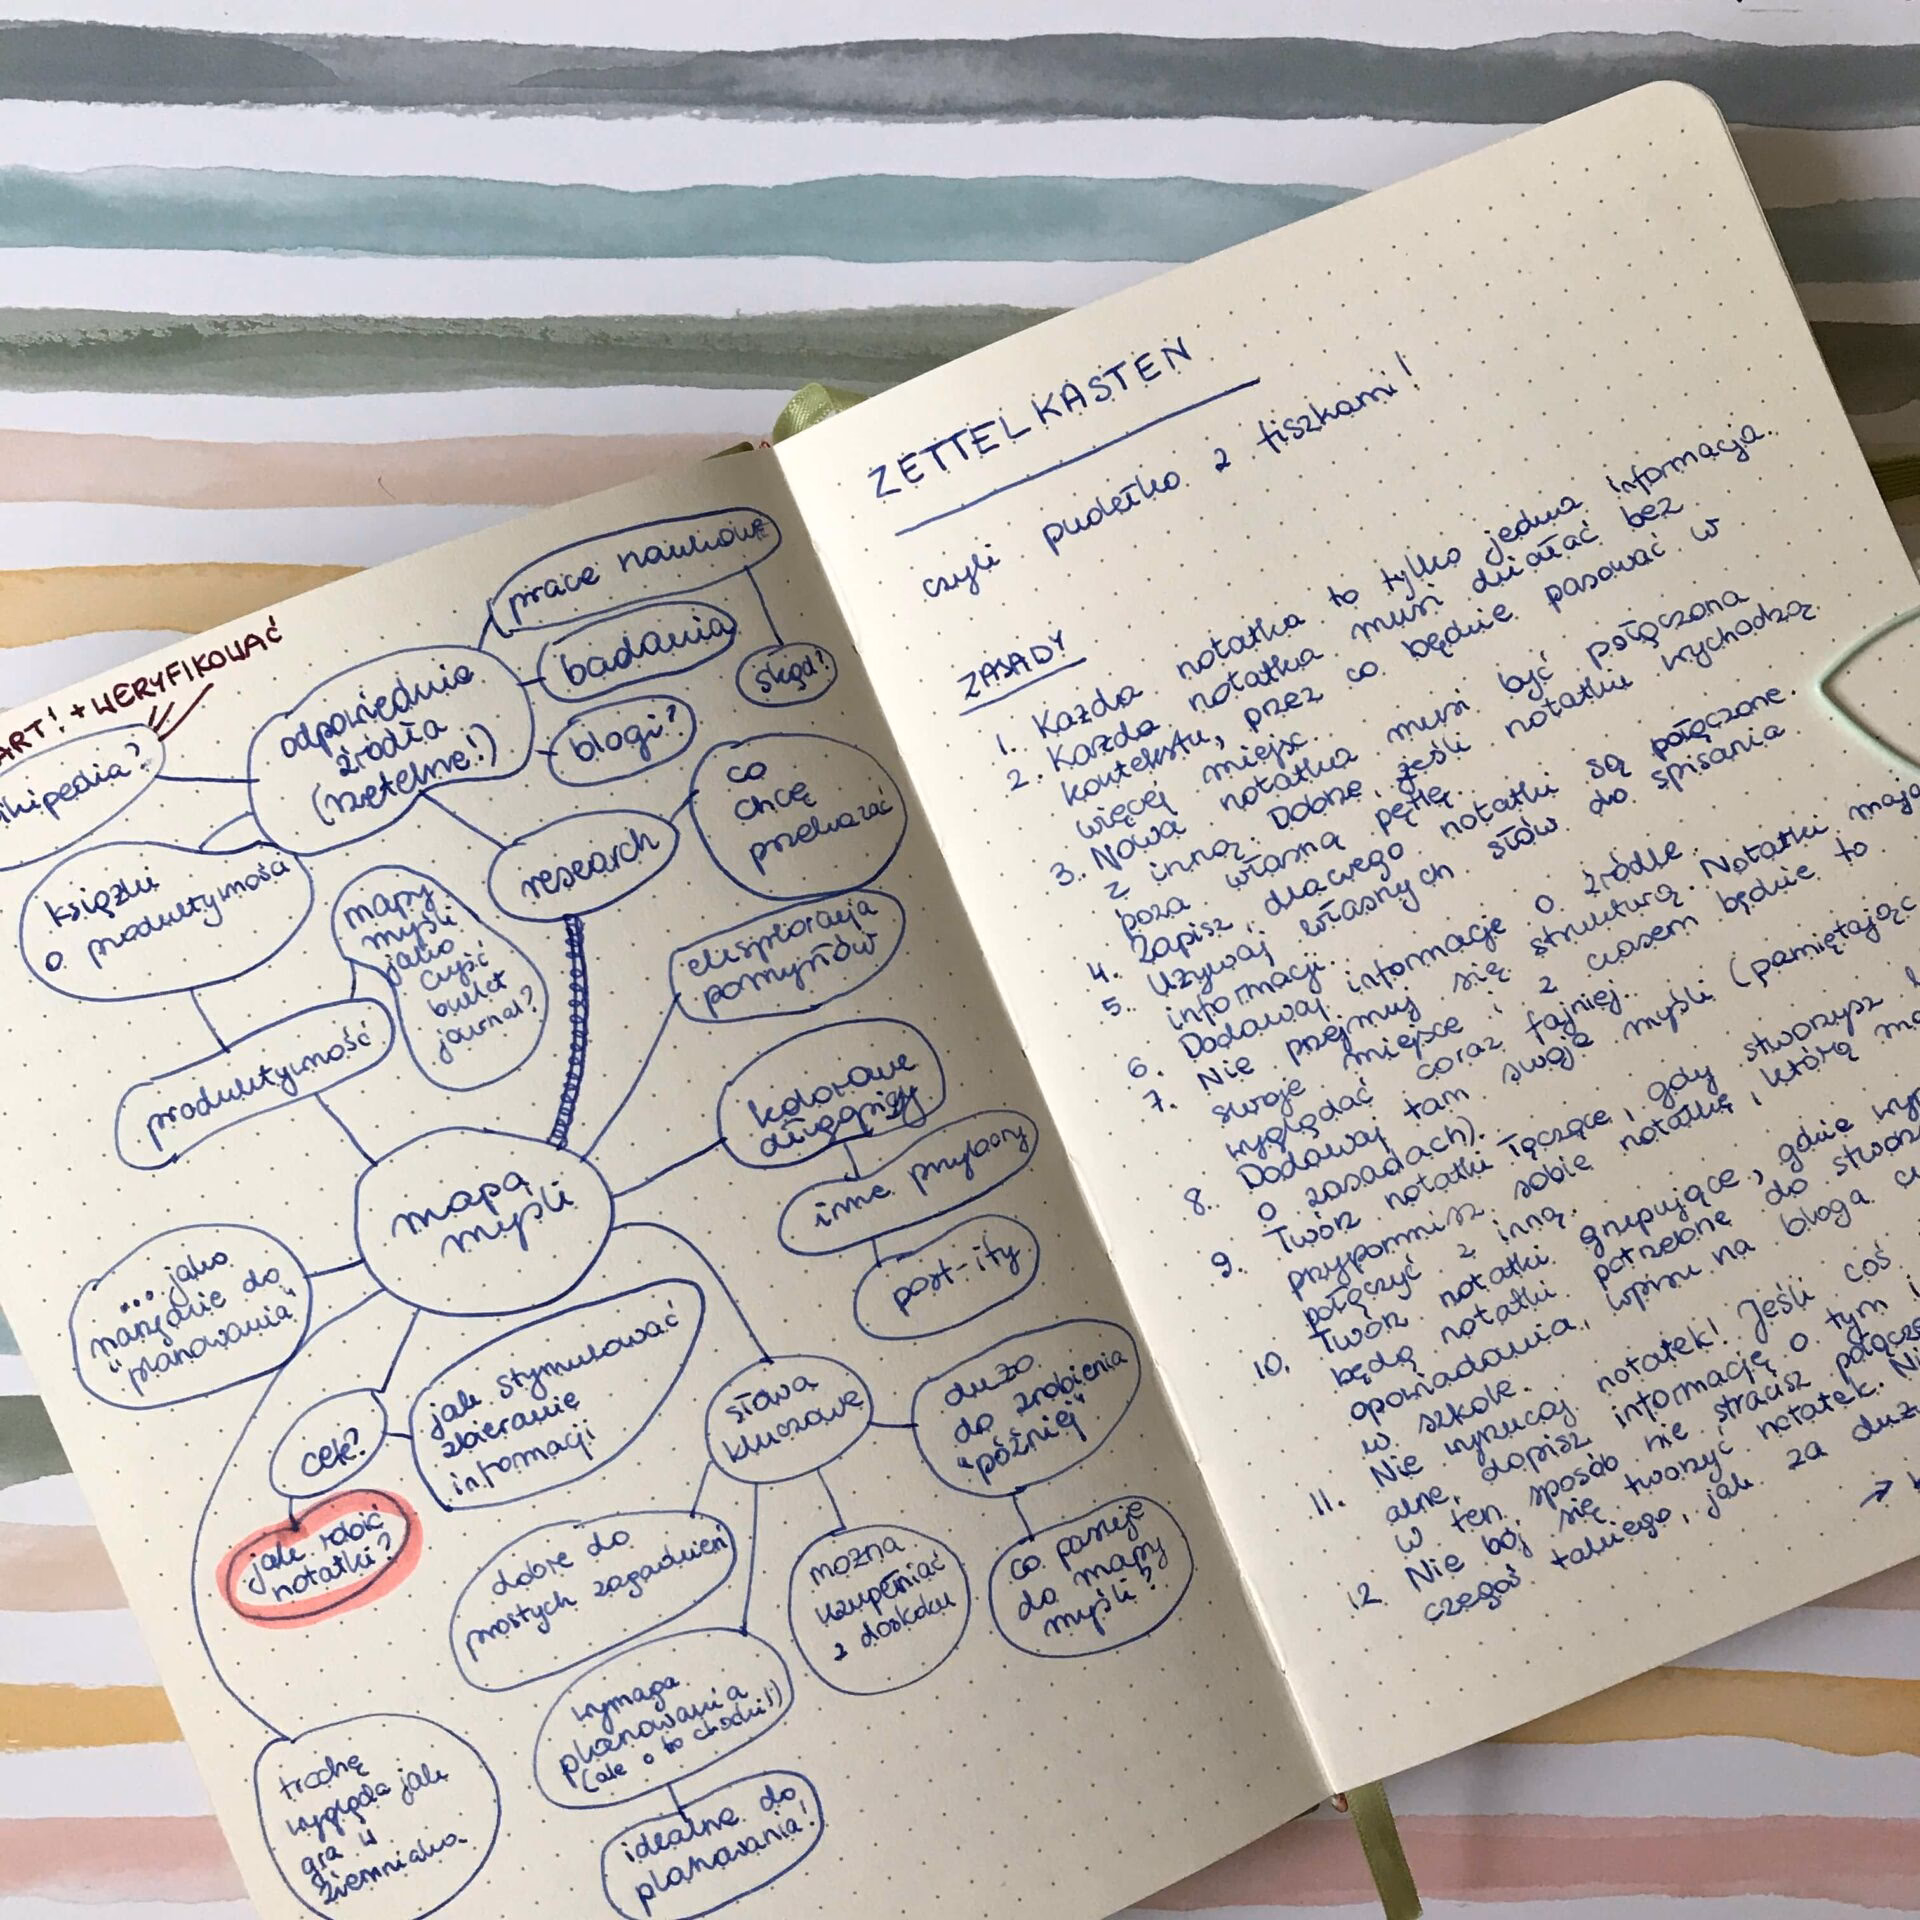 ART! + WERYFIKOWAĆ
ikipedia?
odpowiednie
źródła
(rzetelne!)
prace naukowe
skąd?
badania
blogi?
research
co
chcę
przekazać
książki
o produktywności
mapy
myśli
jako
część
bullet
journal?
eksploracja
pomysłów
produktywność
kolorowe
długopisy
inne przybory
post-ity
mapa
myśli
...jako
narzędzie do
"planowania"
cele?
jak stymulować
zbieranie
informacji
jak robić
notatki?
słowa
kluczowe
dużo
do zrobienia
"później"
co pasuje
do mapy
myśli?
można
uzupełniać
z doskoku
dobre do
prostych zagadnień
wymaga
planowania
(ale o to chodzi!)
idealne do
planowania!
trochę
wygląda jak
gra w
ziemniaka
ZETTELKASTEN
czyli pudełko z fiszkami!
ZASADY
1. Każda notatka to tylko jedna informacja.
2. Każda notatka musi działać bez
kontekstu, przez co będzie pasować w
więcej miejsc.
3. Nowa notatka musi być połączona
z inną. Dobrze, jeśli notatki wychodzą
poza własną pętlę.
4. Zapisz, dlaczego notatki są połączone.
5. Używaj własnych słów do spisania
informacji.
6. Dodawaj informacje o źródle.
7. Nie przejmuj się strukturą. Notatki mają
swoje miejsce i z czasem będzie to
wyglądać coraz fajniej.
8. Dodawaj tam swoje myśli (pamiętając
o zasadach).
9. Twórz notatki łączące, gdy stworzysz
przypomnisz sobie notatkę, którą
połączyć z inną.
10. Twórz notatki grupujące, gdzie
będą notatki potrzebne do
opowiadania, wpisu na bloga
w szkole.
11. Nie wyrzucaj notatek! Jeśli coś
dopisz informację o tym i
w ten sposób nie stracisz
12. Nie bój się tworzyć notatek.
czegoś takiego, jak za
→